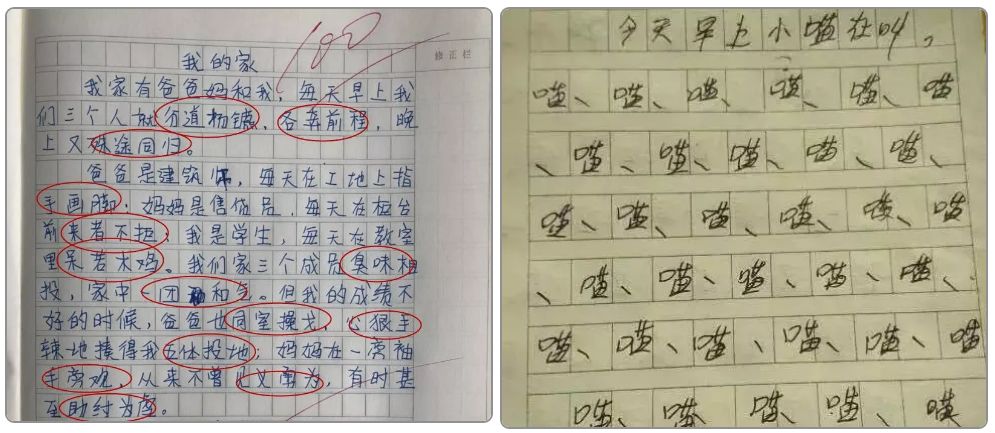 100
修正栏
我的家
我家有爸爸妈和我，每天早上我
们三个人就分道杨镳，各奔前程，晚
上又殊途同归。
爸爸是建筑师，每天在工地上指
手画脚，妈妈是售货员，每天在柜台
前来者不拒，我是学生，每天在教室
里呆若木鸡。我们家三个成员臭味相
投，家中一团和气。但我的成绩不
好的时候，爸爸也同室操戈，心狠手
辣地揍得我五体投地；妈妈在一旁袖
手旁观，从来不曾见义勇为，有时甚
至助纣为虐。
今天早上小喵在叫，
喵、喵、喵、喵、喵、喵
、喵、喵、喵、喵、喵、
喵、喵、喵、喵、喵、喵
、喵、喵、喵、喵、喵、
喵、喵、喵、喵、喵、喵
喵、喵、喵、喵、喵